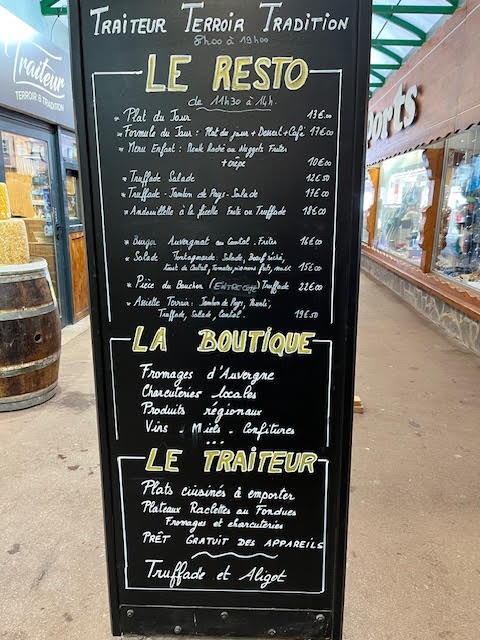 Traiteur
TERROIR & TRADITION
TRAITEUR TERROIR TRADITION
8h00 à 19h00
LE RESTO
de 11h30 à 14h.
Plat du Jour 13€00
Formule du Jour : Plat du jour + Dessert + Café 17€00
Menu Enfant : Steak Haché ou Nuggets Frites
+ Crêpe 10€00
Truffade Salade 12€50
Truffade - Jambon de Pays - Salade 17€00
Andouillette à la ficelle Frite ou Truffade 18€00
Burger Auvergnat au Cantal . Frites 16€00
Salade Montagnarde : Salade, Bœuf séché,
Cantal, Tomates, pommes 15€00
Pièce du Boucher (ENTRECÔTE) Truffade 22€00
Assiette Terroir : Jambon de Pays,
Truffade, Salade, Cantal. 19€50
LA BOUTIQUE
Fromages d'Auvergne
Charcuteries locales
Produits régionaux
Vins - Miels - Confitures
...
LE TRAITEUR
Plats cuisinés à emporter
Plateaux Raclettes au Fondues
Fromages et charcuteries
PRÊT GRATUIT DES APPAREILS
Truffade et Aligot
ports